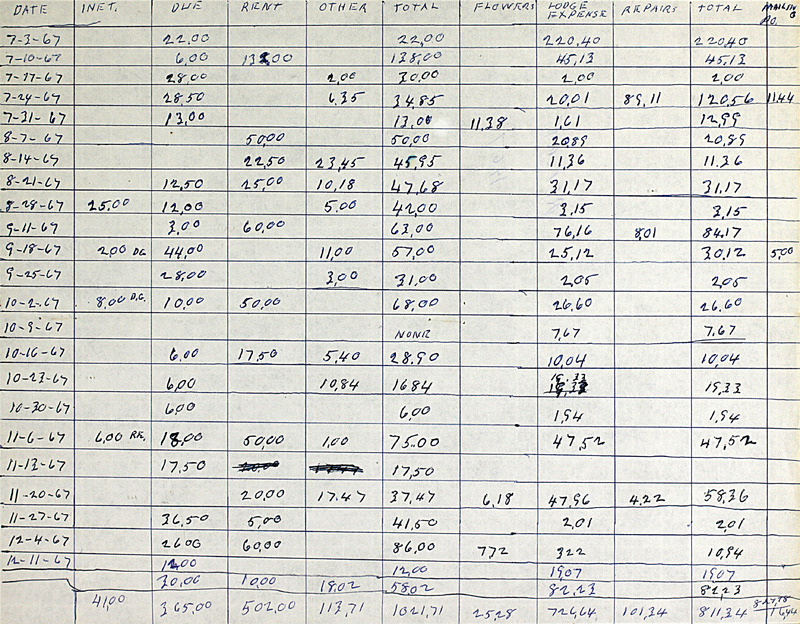 DATE INET. DUE RENT OTHER TOTAL FLOWERS LODGE EXPENSE REPAIRS TOTAL
7-3-67 22,00 22,00 220,40 220,40
7-10-67 6,00 132,00 138,00 45,13 45,13
7-17-67 28,00 2,00 30,00 2,00 2,00
7-24-67 28,50 6,35 34,85 20,01 89,11 120,56 11.44
7-31-67 13,00 13,00 11,38 1,61 12,99
8-7-67 50,00 50,00 20,89 20,89
8-14-67 22,50 23,45 45,95 11,36 11.36
8-21-67 12,50 25,00 10,18 47,68 31,17 31,17
8-28-67 25,00 12,00 5,00 42,00 3,15 3,15
9-11-67 3,00 60,00 63,00 76,16 8,01 84,17
9-18-67 2,00 DG. 44,00 11,00 57,00 25,12 30,12 5,00
9-25-67 28,00 3,00 31,00 2,05 2,05
10-2-67 8,00 D.G. 10,00 50,00 68,00 26,60 26,60
10-9-67 NONE 7,67 7.67
10-16-67 6,00 17,50 5,40 28.90 10,04 10,04
10-23-67 6,00 10,84 1684 19.33 19,33
10-30-67 6,00 6,00 1,94 1,94
11-6-67 6,00 RE. 18,00 50,00 1,00 75.00 47,52 47,52
11-13-67 17,50 17,50
11-20-67 20,00 17.47 37,47 6,18 47,96 4,22 58,36
11-27-67 36,50 5,00 41,50 2,01 2,01
12-4-67 26,00 60,00 86,00 7,72 3,22 10,94
12-11-67 12,00 12,00 19,07 19,07
30,00 10,00 18,02 58,02 82,23 82,23
41,00 365,00 502,00 113,71 1021,71 25,28 726,64 101,34 811,34